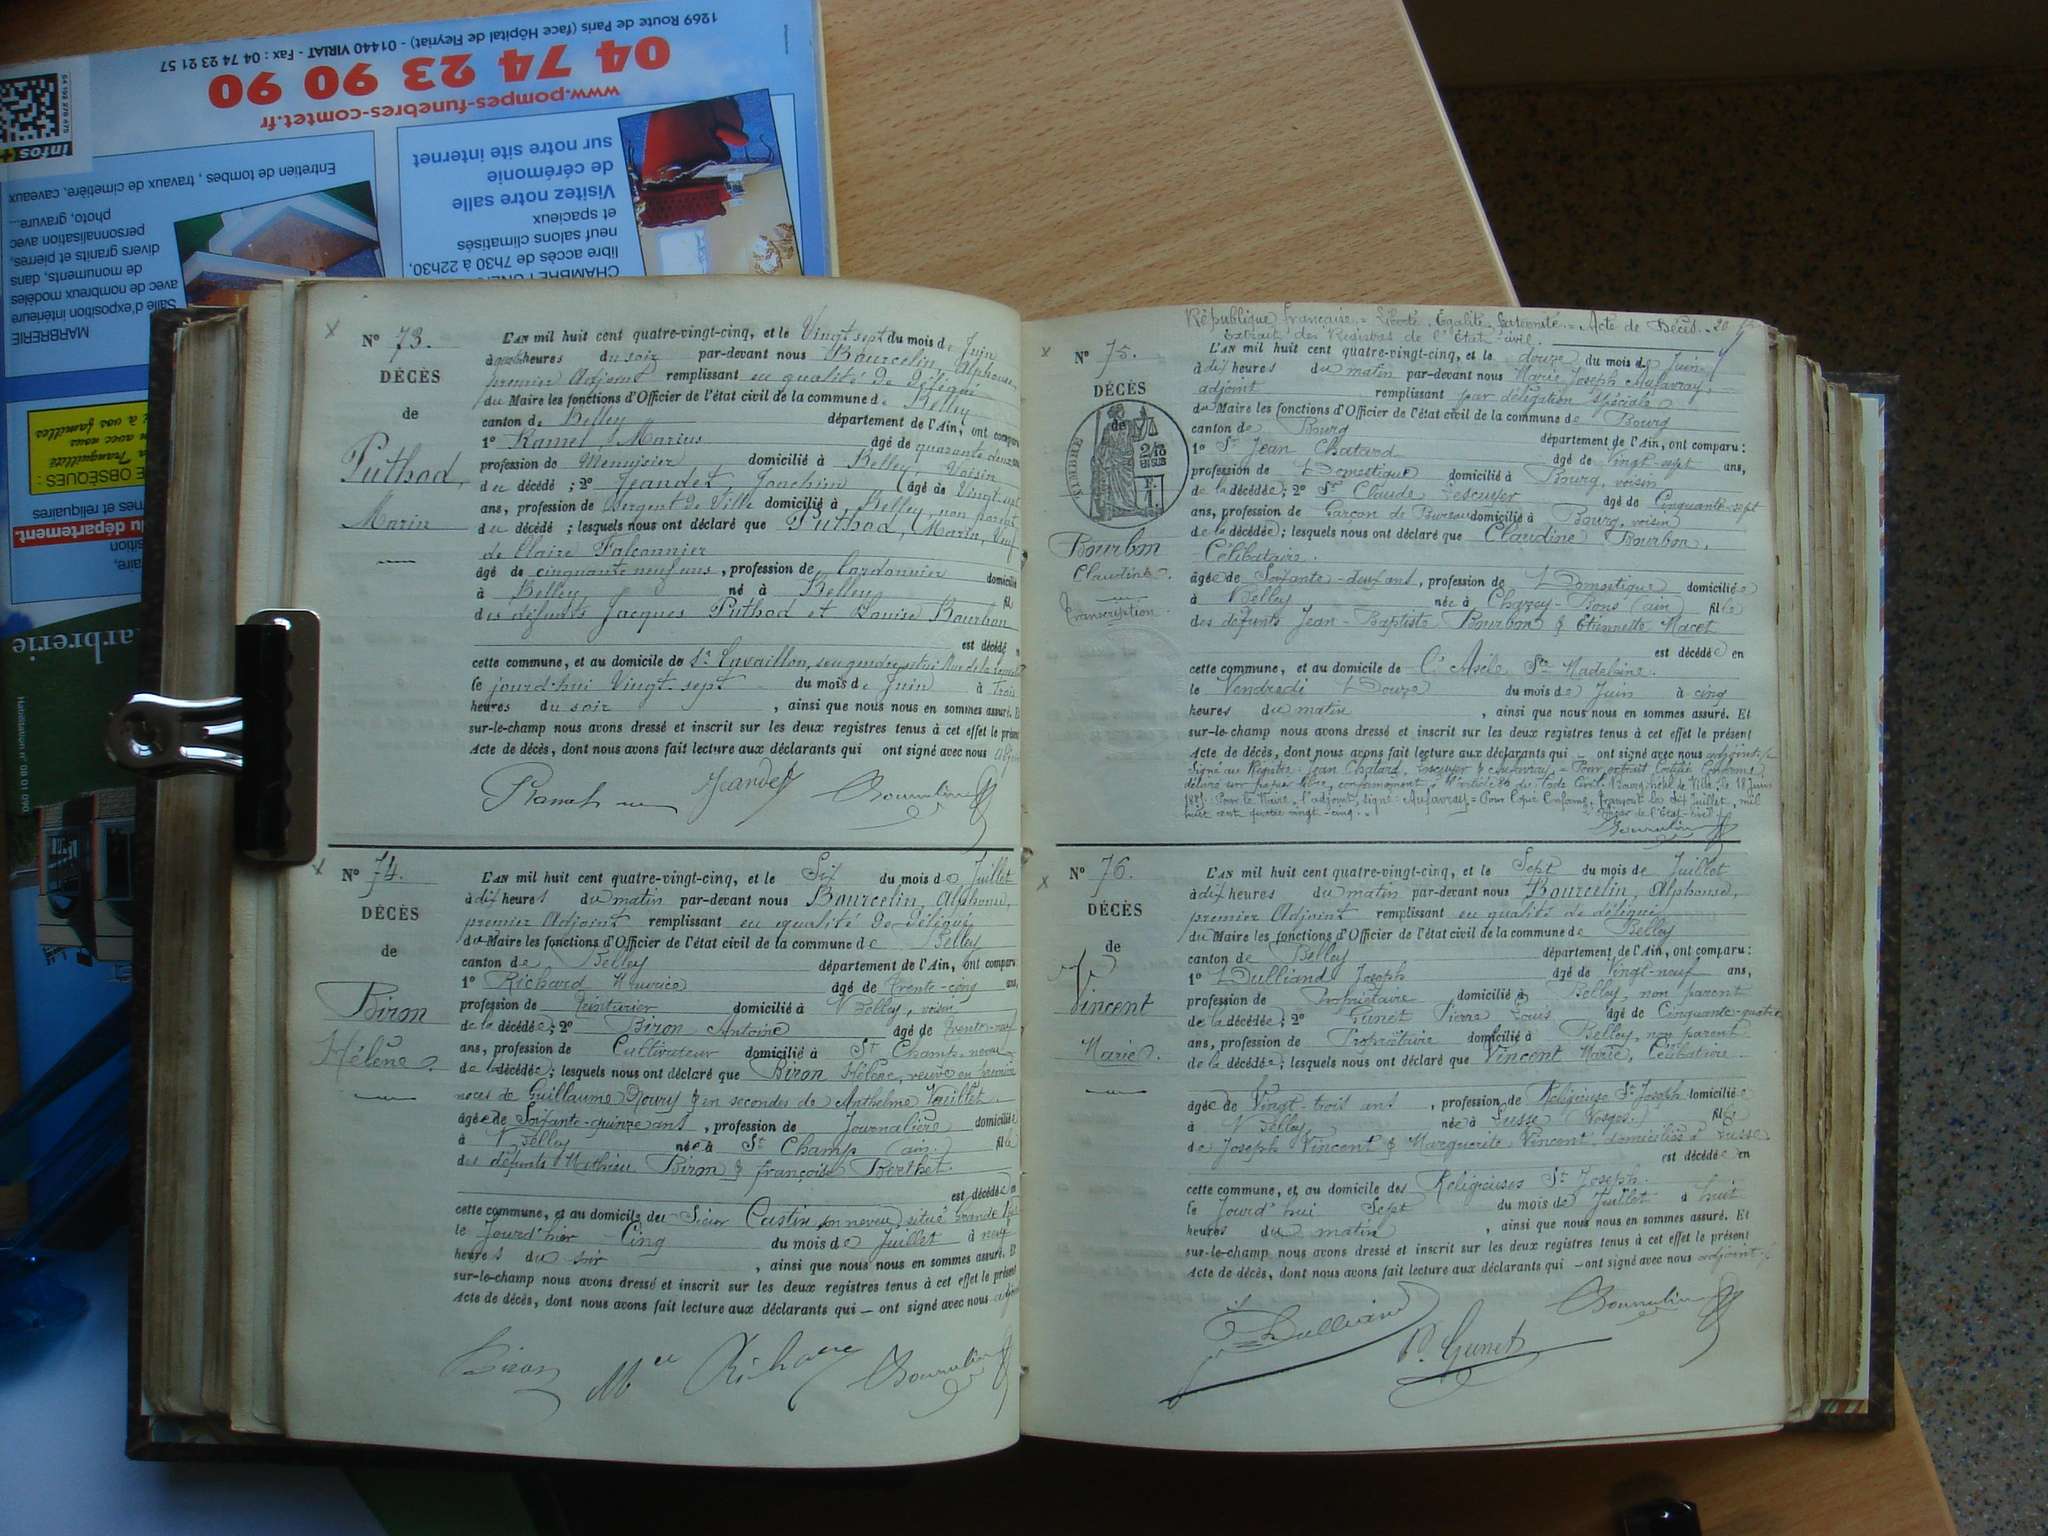 1269 Route de Paris (face Hôpital de Fleyriat) - 01440 VIRIAT - Fax : 04 74 23 21 57
04 74 23 90 90
www.pompes-funebres-comtet.fr
infos
Entretien de tombes, travaux de cimetière, caveaux
photo, gravure...
personnalisation avec
divers granits et pierres,
de monuments, dans
avec de nombreux modèles
Salle d'exposition intérieure
MARBRERIE
sur notre site internet
de cérémonie
Visitez notre salle
et spacieux
neuf salons climatisés
libre accès de 7h30 à 22h30,
à vos familles
avec nous
Tranquillité
OBSÈQUES :
et reliquaires
du département.
arbrerie
Habilitation n° 08 01 090
Nº 73.
DÉCÈS
de
Puthod,
Marin
L'AN mil huit cent quatre-vingt-cinq, et le Vingt sept du mois de Juin
à quatre heures du soir par-devant nous Bourcelin, Alphonse,
premier Adjoint remplissant en qualité de délégué
du Maire les fonctions d'Officier de l'état civil de la commune de Belley
canton de Belley département de l'Ain, ont comparu
1º Ramel, Marius âgé de quarante deux
profession de Menuisier domicilié à Belley, Voisin
du décédé ; 2º Jeandet, Joachim âgé de Vingt-sept
ans, profession de Sergent de Ville domicilié à Belley, non parent
du décédé ; lesquels nous ont déclaré que Puthod, Marin, Veuf
de Claire Falconnier
âgé de cinquante neuf ans, profession de Cordonnier domicilié
à Belley né à Belley fil
des défunts Jacques Puthod et Louise Bourbon
est décédé
cette commune, et au domicile de Sr Lavaillon, son gendre,
le jourd'hui Vingt-sept du mois de Juin à Trois
heures du soir, ainsi que nous nous en sommes assuré. Et
sur-le-champ nous avons dressé et inscrit sur les deux registres tenus à cet effet le présent
Acte de décès, dont nous avons fait lecture aux déclarants qui ont signé avec nous
Ramel Jeandet Bourcelin
Nº 74.
DÉCÈS
de
Biron
Hélène
L'AN mil huit cent quatre-vingt-cinq, et le Six du mois de Juillet
à dix heures du matin par-devant nous Bourcelin, Alphonse,
premier Adjoint remplissant en qualité de délégué
du Maire les fonctions d'Officier de l'état civil de la commune de Belley
canton de Belley département de l'Ain, ont comparu
1º Richard Maurice âgé de trente-cinq ans,
profession de Teinturier domicilié à Belley, voisin
de la décédée ; 2º Biron Antoine âgé de trente-neuf
ans, profession de Cultivateur domicilié à St Champ, neveu
de la décédée ; lesquels nous ont déclaré que Biron Hélène, veuve en première
noces de Guillaume & en secondes de Anthelme Vuillet
âgée de Soixante-quinze ans, profession de Journalière domiciliée
à Belley née à St Champ (ain) fille
des défunts Mathieu Biron & françoise Berthet.
est décédée en
cette commune, et au domicile du Sieur Custin son neveu, situé grande
le Jourd'hier Cinq du mois de Juillet à neuf
heures du soir, ainsi que nous nous en sommes assuré. Et
sur-le-champ nous avons dressé et inscrit sur les deux registres tenus à cet effet le présent
Acte de décès, dont nous avons fait lecture aux déclarants qui — ont signé avec nous
Biron Mce Richard Bourcelin
République française = Liberté. Égalité. fraternité = Acte de Décès.
Extrait des Registres de l'État-civil.
Nº 75.
DÉCÈS
de
TIMBRE
Bourbon
Claudine.
Transcription.
L'AN mil huit cent quatre-vingt-cinq, et le douze du mois de Juin
à dix heures du matin par-devant nous Marie Joseph Aufavray,
adjoint remplissant par délégation Spéciale
du Maire les fonctions d'Officier de l'état civil de la commune de Bourg
canton de Bourg département de l'Ain, ont comparu :
1º Sr Jean Chatard âgé de Vingt-sept ans,
profession de Domestique domicilié à Bourg, voisin
de la décédée ; 2º Sr Claude Lescuyer âgé de Cinquante-sept
ans, profession de Garçon de Bureau domicilié à Bourg, voisin
de la décédée ; lesquels nous ont déclaré que Claudine Bourbon,
Célibataire.
âgée de Soixante-deux ans, profession de Domestique domiciliée
à Belley née à Chazey-Bons (ain) fille
des défunts Jean-Baptiste Bourbon & Etiennette Macet
est décédée en
cette commune, et au domicile de L'Asile Ste Madelaine.
le Vendredi Douze du mois de Juin à cinq
heures du matin, ainsi que nous nous en sommes assuré. Et
sur-le-champ nous avons dressé et inscrit sur les deux registres tenus à cet effet le présent
Acte de décès, dont nous avons fait lecture aux déclarants qui — ont signé avec nous adjoint
Signé au Registre : Jean Chatard, Lescuyer & Aufavray = Pour extrait Certifié Conforme,
délivré sur papier libre, conformément à l'article 80 du Code Civil. Bourg, hôtel de Ville, le 18 Juin
1885 Pour le Maire, l'adjoint, signé : Aufavray = Pour Copie Conforme, transcrit les dix Juillet, mil
huit cent quatre vingt-cinq. L'officier de l'État-civil
Bourcelin
Nº 76.
DÉCÈS
de
Vincent
Marie.
L'AN mil huit cent quatre-vingt-cinq, et le Sept du mois de Juillet
à dix heures du matin par-devant nous Bourcelin, Alphonse,
premier Adjoint remplissant en qualité de délégué
du Maire les fonctions d'Officier de l'état civil de la commune de Belley
canton de Belley département de l'Ain, ont comparu :
1º Dulliand Joseph âgé de Vingt-neuf ans,
profession de Propriétaire domicilié à Belley, non parent
de la décédée ; 2º Gunet Pierre Louis âgé de Cinquante-quatre
ans, profession de Propriétaire domicilié à Belley, non parent
de la décédée ; lesquels nous ont déclaré que Vincent Marie, Célibataire
âgée de Vingt-trois ans, profession de Religieuse St Joseph domiciliée
à Belley née à Lusse (Vosges) fille
de Joseph Vincent & Marguerite Vincent domiciliés à Lusse.
est décédée en
cette commune, et au domicile des Religieuses St Joseph.
le Jourd'hui Sept du mois de Juillet à huit
heures du matin, ainsi que nous nous en sommes assuré. Et
sur-le-champ nous avons dressé et inscrit sur les deux registres tenus à cet effet le présent
Acte de décès, dont nous avons fait lecture aux déclarants qui — ont signé avec nous adjoint
J. Dulliand P. Gunet Bourcelin